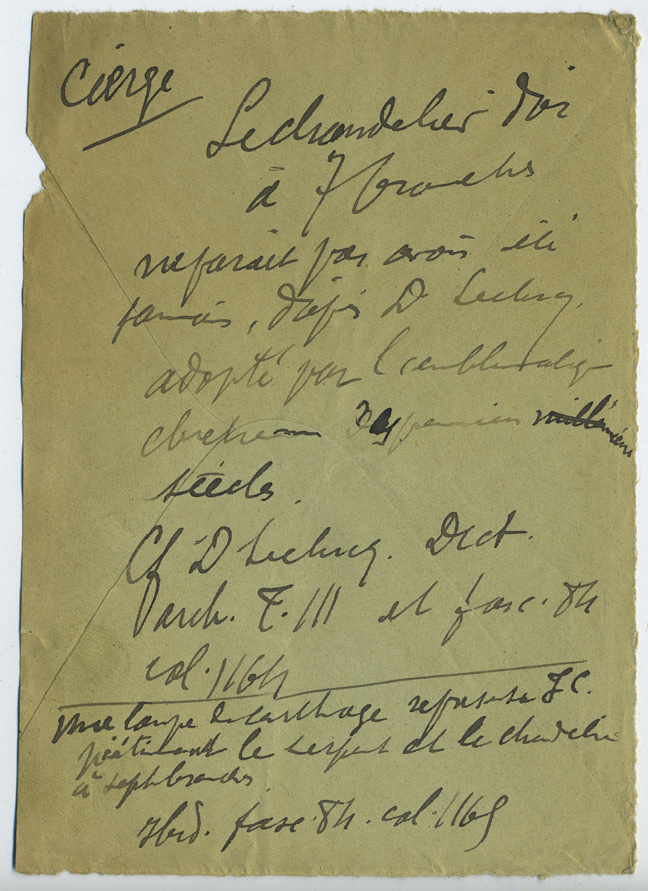 Cierge
Le chandelier d'or
à 7 branches
ne parait pas avoir été
jamais, d'après D. Leclercq,
adopté par l'emblématique
chrétienne des premiers millénaire
siècles.
Cf D Leclercq. Dict.
d'arch. T. III et fasc.
col. 1164
Une lampe de Carthage représente J.C.
piétinant le serpent et le chandelier
à sept branches
Ibid. fasc. col. 1165